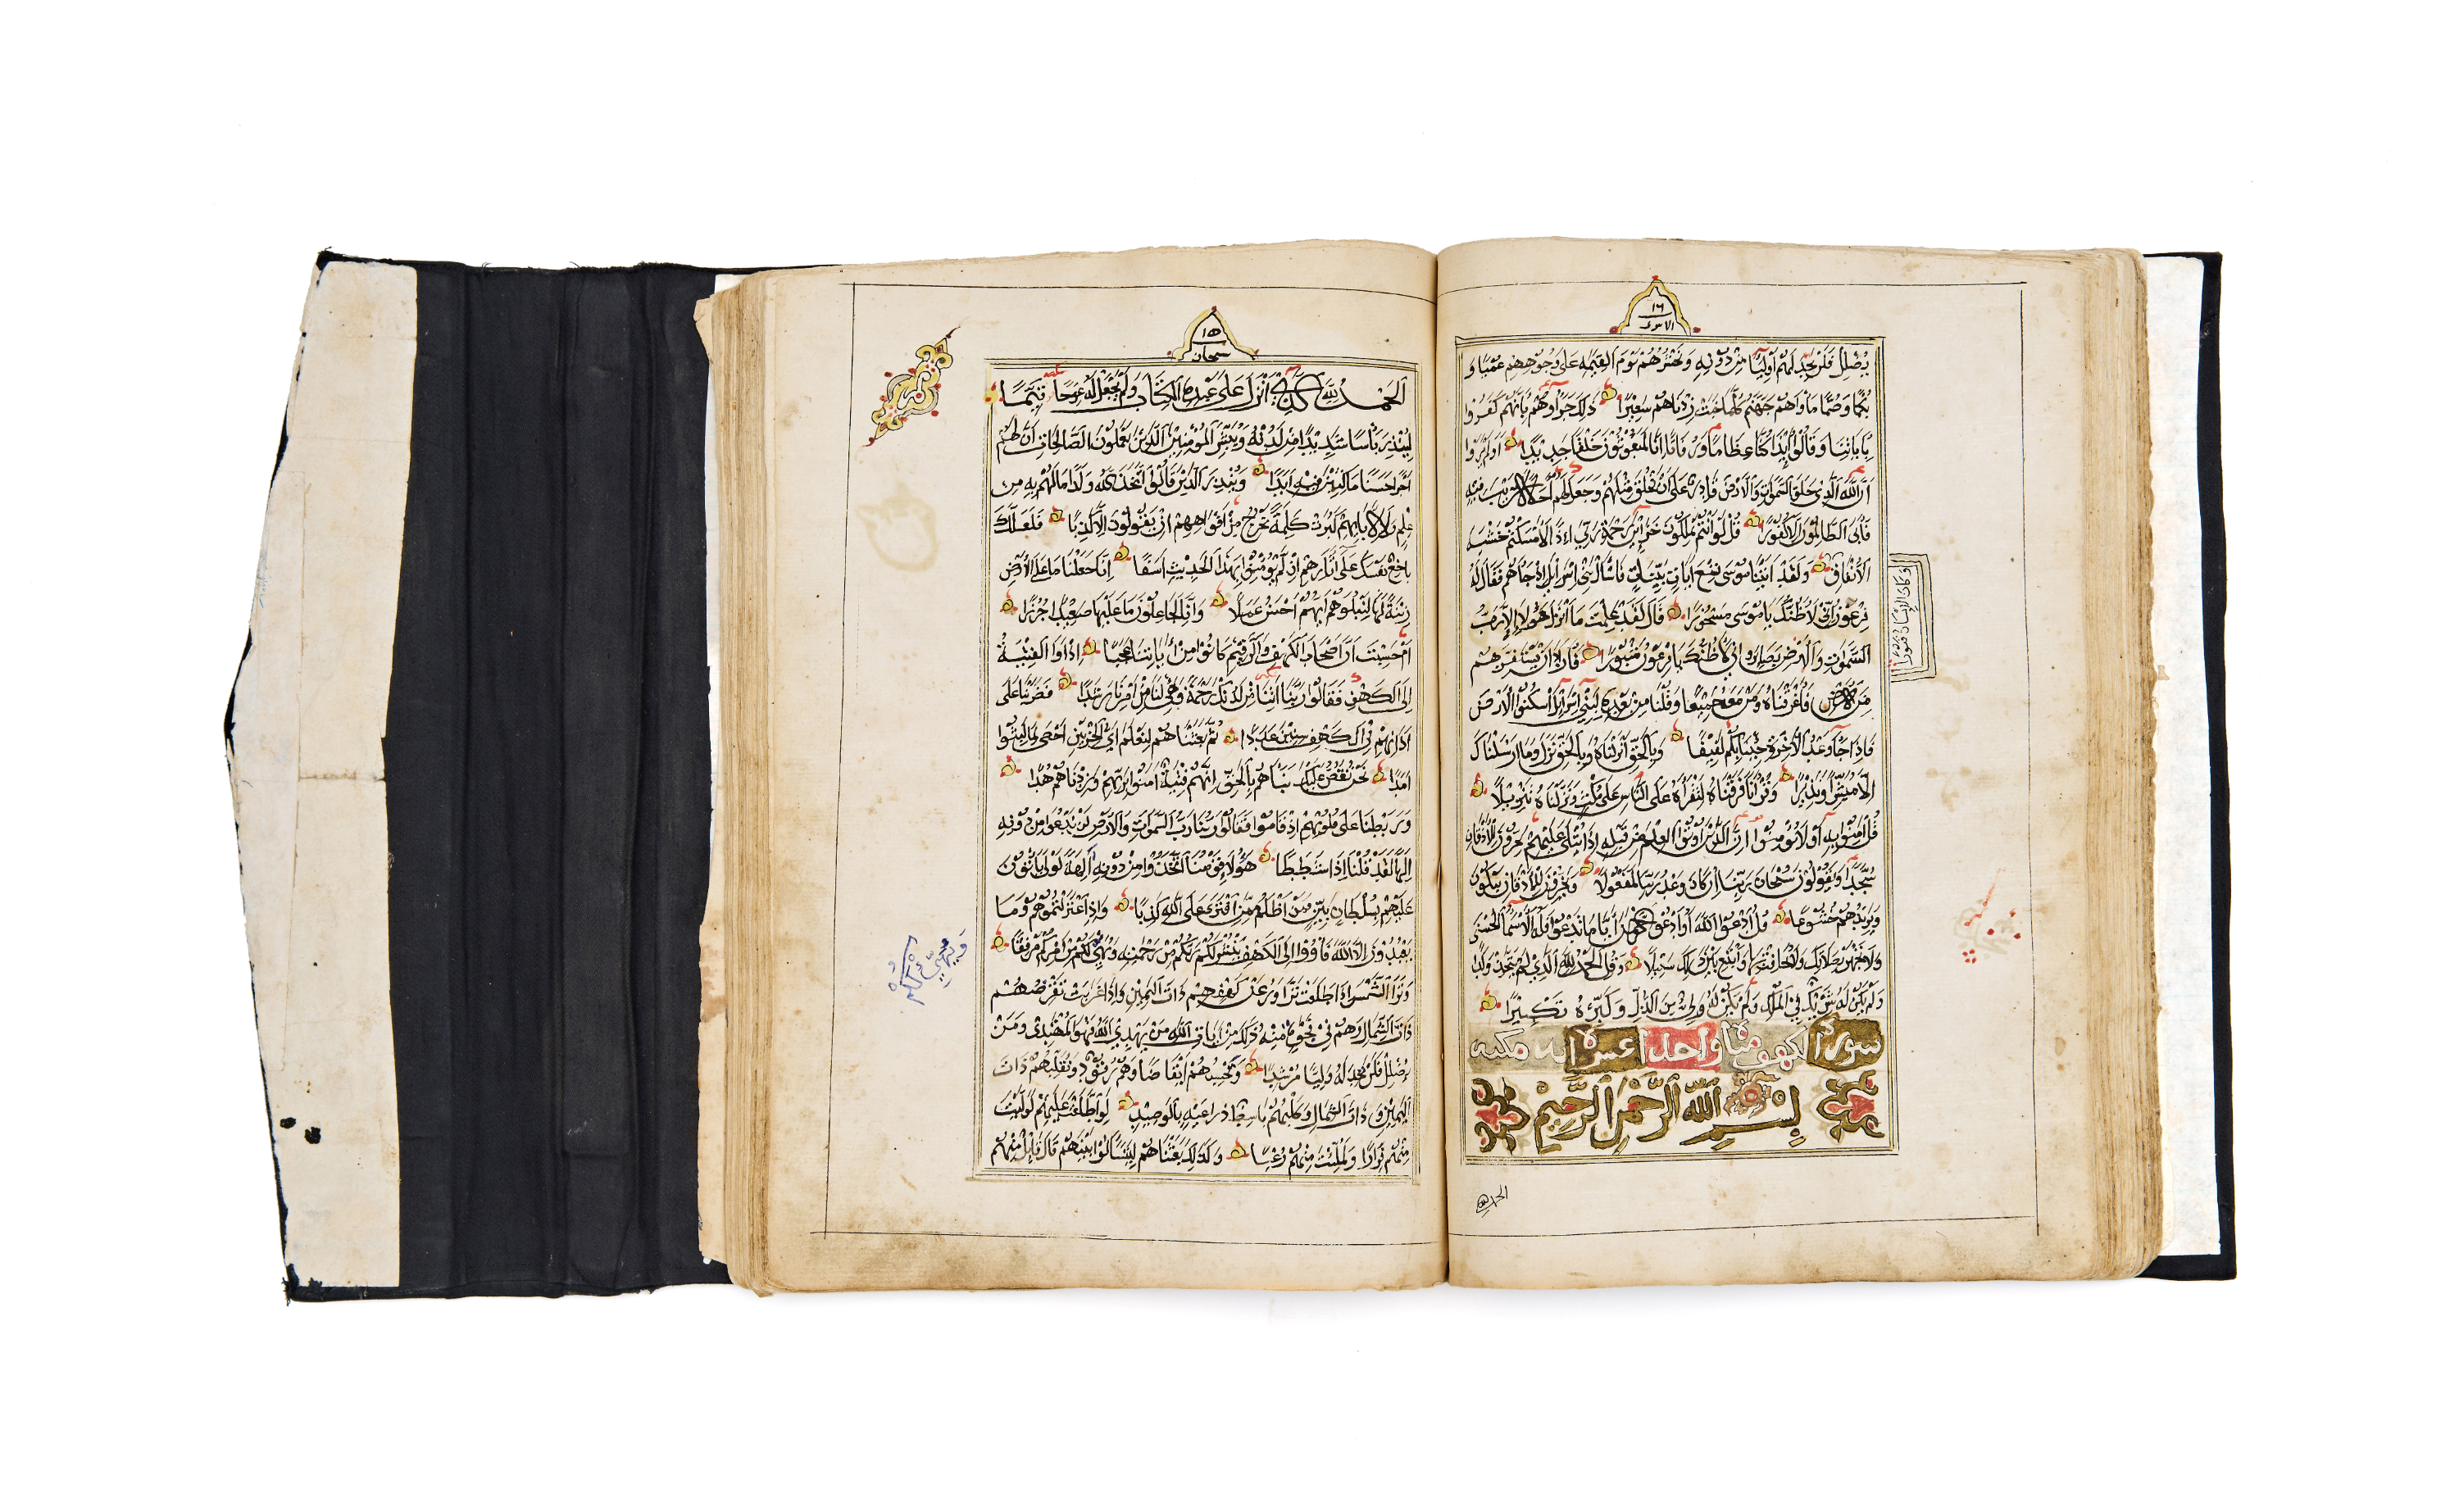 ١٦
الاسرى
يُضْلِلْ فَلَنْ تَجِدَ لَهُمْ أَوْلِيَآ مِنْ دُونِهِ وَنَحْشُرُهُمْ يَوْمَ الْقِيَمَةِ عَلَى وُجُوهِهِمْ عُمْيًا وَ
بُكْمًا وَصُمًّا مَأْوَاهُمْ جَهَنَّمُ كُلَّمَا خَبَتْ زِدْنَاهُمْ سَعِيْرًا ذَلِكَ جَزَآؤُهُمْ بِأَنَّهُمْ كَفَرُوا
بِآيَاتِنَا وَقَالُوا أَئِذَا كُنَّا عِظَامًا وَرُفَاتًا أَئِنَّا لَمَبْعُوْثُوْنَ خَلْقًا جَدِيْدًا أَوَلَمْ يَرَوْا
أَنَّ اللَّهَ الَّذِي خَلَقَ السَّمَوَاتِ وَالْأَرْضَ قَادِرٌ عَلَى أَنْ يَخْلُقَ مِثْلَهُمْ وَجَعَلَ لَهُمْ أَجَلًا لَا رَيْبَ فِيْهِ
فَأَبَى الظَّالِمُوْنَ إِلَّا كُفُوْرًا قُلْ لَوْ أَنْتُمْ تَمْلِكُوْنَ خَزَآئِنَ رَحْمَةِ رَبِّي إِذًا لَأَمْسَكْتُمْ خَشْيَةَ
الْإِنْفَاقِ وَلَقَدْ آتَيْنَا مُوْسَى تِسْعَ آيَاتٍ بَيِّنَاتٍ فَاسْأَلْ بَنِي إِسْرَآئِلَ إِذْ جَآهُمْ فَقَالَ لَهُ
وَكَانَ الْإِنْسَانُ قَتُوْرًا
فِرْعَوْنُ إِنِّي لَأَظُنُّكَ يَا مُوْسَى مَسْحُوْرًا قَالَ لَقَدْ عَلِمْتَ مَا أَنْزَلَ هَؤُلَآءِ إِلَّا رَبُّ
السَّمَوَاتِ وَالْأَرْضِ بَصَآئِرَ وَإِنِّي لَأَظُنُّكَ يَا فِرْعَوْنُ مَثْبُوْرًا فَأَرَادَ أَنْ يَسْتَفِزَّهُمْ
مِنَ الْأَرْضِ فَأَغْرَقْنَاهُ وَمَنْ مَعَهُ جَمِيْعًا وَقُلْنَا مِنْ بَعْدِهِ لِبَنِي إِسْرَآئِلَ اسْكُنُوا الْأَرْضَ
فَإِذَا جَآءَ وَعْدُ الْآخِرَةِ جِئْنَا بِكُمْ لَفِيْفًا وَبِالْحَقِّ أَنْزَلْنَاهُ وَبِالْحَقِّ نَزَلَ وَمَا أَرْسَلْنَاكَ
إِلَّا مُبَشِّرًا وَنَذِيْرًا وَقُرْآنًا فَرَقْنَاهُ لِتَقْرَأَهُ عَلَى النَّاسِ عَلَى مُكْثٍ وَنَزَّلْنَاهُ تَنْزِيْلًا
قُلْ آمِنُوا بِهِ أَوْ لَا تُؤْمِنُوْا إِنَّ الَّذِيْنَ أُوْتُوا الْعِلْمَ مِنْ قَبْلِهِ إِذَا يُتْلَى عَلَيْهِمْ يَخِرُّوْنَ لِلْأَذْقَانِ
سُجَّدًا وَيَقُوْلُوْنَ سُبْحَانَ رَبِّنَا إِنْ كَانَ وَعْدُ رَبِّنَا لَمَفْعُوْلًا وَيَخِرُّوْنَ لِلْأَذْقَانِ يَبْكُوْنَ
وَيَزِيْدُهُمْ خُشُوْعًا قُلِ ادْعُوا اللَّهَ أَوِ ادْعُوا الرَّحْمَنَ أَيًّا مَا تَدْعُوْا فَلَهُ الْأَسْمَآ الْحُسْنَى
وَلَا تَجْهَرْ بِصَلَاتِكَ وَلَا تُخَافِتْ بِهَا وَابْتَغِ بَيْنَ ذَلِكَ سَبِيْلًا وَقُلِ الْحَمْدُ لِلَّهِ الَّذِي لَمْ يَتَّخِذْ وَلَدًا
وَلَمْ يَكُنْ لَهُ شَرِيْكٌ فِي الْمُلْكِ وَلَمْ يَكُنْ لَهُ وَلِيٌّ مِنَ الذُّلِّ وَكَبِّرْهُ تَكْبِيْرًا
سورة الكهف مئة واحدا عشرة ايه مكيه
بِسْمِ اللَّهِ الرَّحْمَنِ الرَّحِيْمِ
الحمد لله
١٥
سبحان
الْحَمْدُ لِلَّهِ الَّذِي أَنْزَلَ عَلَى عَبْدِهِ الْكِتَابَ وَلَمْ يَجْعَلْ لَهُ عِوَجًا قَيِّمًا
لِيُنْذِرَ بَأْسًا شَدِيْدًا مِنْ لَدُنْهُ وَيُبَشِّرَ الْمُؤْمِنِيْنَ الَّذِيْنَ يَعْمَلُوْنَ الصَّالِحَاتِ أَنَّ لَهُمْ
أَجْرًا حَسَنًا مَاكِثِيْنَ فِيْهِ أَبَدًا وَيُنْذِرَ الَّذِيْنَ قَالُوْا اتَّخَذَ اللَّهُ وَلَدًا مَا لَهُمْ بِهِ مِنْ
عِلْمٍ وَلَا لِآبَائِهِمْ كَبُرَتْ كَلِمَةً تَخْرُجُ مِنْ أَفْوَاهِهِمْ إِنْ يَقُوْلُوْنَ إِلَّا كَذِبًا فَلَعَلَّكَ
بَاخِعٌ نَفْسَكَ عَلَى آثَارِهِمْ إِنْ لَمْ يُؤْمِنُوْا بِهَذَا الْحَدِيْثِ أَسَفًا إِنَّا جَعَلْنَا مَا عَلَى الْأَرْضِ
زِيْنَةً لَهَا لِنَبْلُوَهُمْ أَيُّهُمْ أَحْسَنُ عَمَلًا وَإِنَّا لَجَاعِلُوْنَ مَا عَلَيْهَا صَعِيْدًا جُرُزًا
أَمْ حَسِبْتَ أَنَّ أَصْحَابَ الْكَهْفِ وَالرَّقِيْمِ كَانُوْا مِنْ آيَاتِنَا عَجَبًا إِذْ أَوَى الْفِتْيَةُ
إِلَى الْكَهْفِ فَقَالُوْا رَبَّنَا آتِنَا مِنْ لَدُنْكَ رَحْمَةً وَهَيِّئْ لَنَا مِنْ أَمْرِنَا رَشَدًا فَضَرَبْنَا عَلَى
آذَانِهِمْ فِي الْكَهْفِ سِنِيْنَ عَدَدًا ثُمَّ بَعَثْنَاهُمْ لِنَعْلَمَ أَيُّ الْحِزْبَيْنِ أَحْصَى لِمَا لَبِثُوْا
أَمَدًا نَحْنُ نَقُصُّ عَلَيْكَ نَبَأَهُمْ بِالْحَقِّ إِنَّهُمْ فِتْيَةٌ آمَنُوْا بِرَبِّهِمْ وَزِدْنَاهُمْ هُدًا
وَرَبَطْنَا عَلَى قُلُوْبِهِمْ إِذْ قَامُوْا فَقَالُوْا رَبُّنَا رَبُّ السَّمَوَاتِ وَالْأَرْضِ لَنْ نَدْعُوَا مِنْ دُوْنِهِ
إِلَهًا لَقَدْ قُلْنَا إِذًا شَطَطًا هَؤُلَآءِ قَوْمُنَا اتَّخَذُوْا مِنْ دُوْنِهِ آلِهَةً لَوْلَا يَأْتُوْنَ
عَلَيْهِمْ بِسُلْطَانٍ بَيِّنٍ فَمَنْ أَظْلَمُ مِمَّنِ افْتَرَى عَلَى اللَّهِ كَذِبًا وَإِذِ اعْتَزَلْتُمُوْهُمْ وَمَا
يَعْبُدُوْنَ إِلَّا اللَّهَ فَأْوُوْا إِلَى الْكَهْفِ يَنْشُرْ لَكُمْ رَبُّكُمْ مِنْ رَحْمَتِهِ وَيُهَيِّئْ لَكُمْ مِنْ أَمْرِكُمْ مِرْفَقًا
وَيُهَيِّئْ لَكُمْ
وَتَرَى الشَّمْسَ إِذَا طَلَعَتْ تَزَّاوَرُ عَنْ كَهْفِهِمْ ذَاتَ الْيَمِيْنِ وَإِذَا غَرَبَتْ تَقْرِضُهُمْ
ذَاتَ الشِّمَالِ وَهُمْ فِي فَجْوَةٍ مِنْهُ ذَلِكَ مِنْ آيَاتِ اللَّهِ مَنْ يَهْدِي اللَّهُ فَهُوَ الْمُهْتَدِي وَمَنْ
يُضْلِلْ فَلَنْ تَجِدَ لَهُ وَلِيًّا مُرْشِدًا وَتَحْسَبُهُمْ أَيْقَاضًا وَهُمْ رُقُوْدٌ وَنُقَلِّبُهُمْ ذَاتَ
الْيَمِيْنِ وَذَاتَ الشِّمَالِ وَكَلْبُهُمْ بَاسِطٌ ذِرَاعَيْهِ بِالْوَصِيْدِ لَوِ اطَّلَعْتَ عَلَيْهِمْ لَوَلَّيْتَ
مِنْهُمْ فِرَارًا وَلَمُلِئْتَ مِنْهُمْ رُعْبًا وَكَذَلِكَ بَعَثْنَاهُمْ لِيَتَسَآءَلُوْا بَيْنَهُمْ قَالَ قَآئِلٌ مِنْهُمْ